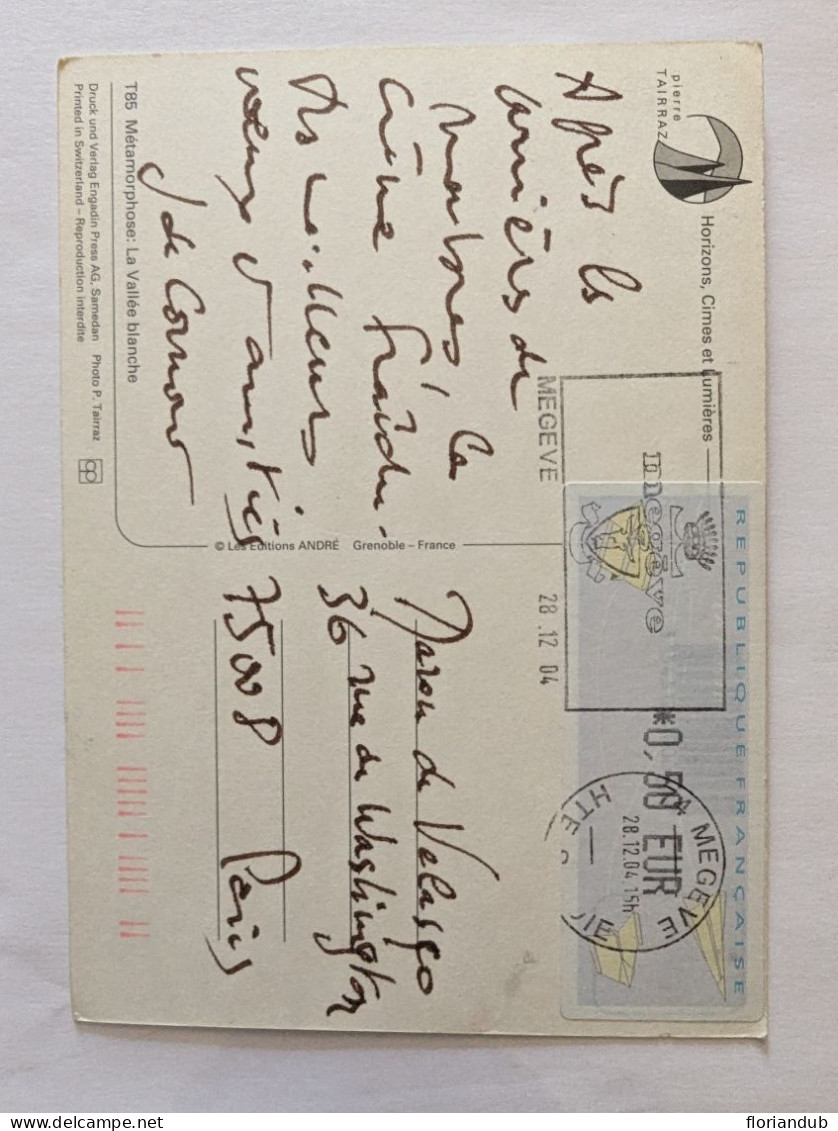 pierre
TAIRRAZ
Horizons, Cimes et Lumières
Après la
lumière de
la
cîme
Mes meilleurs
vœux d'amitiés
J de
T85 Métamorphose: La Vallée blanche
Druck und Verlag Engadin Press AG, Samedan Photo P. Tairraz
Printed in Switzerland – Reproduction interdite
© Les Editions ANDRÉ Grenoble – France
MEGEVE 28.12 04
megève
REPUBLIQUE FRANÇAISE
*0,50 EUR
74 MEGEVE
28.12.04.15h
HTE
de Velasco
36 rue de Washington
75008 Paris
floriandub